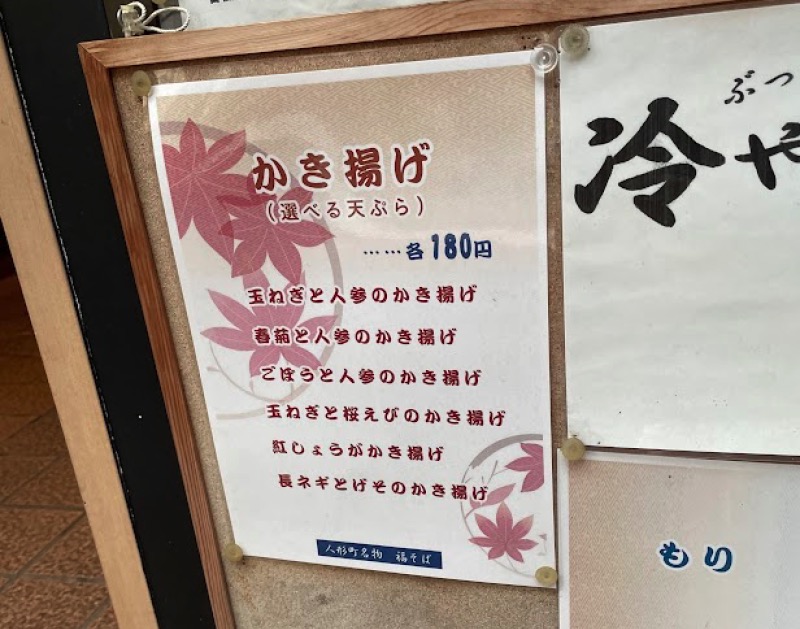 かき揚げ
（選べる天ぷら）
……各180円
玉ねぎと人参のかき揚げ
春菊と人参のかき揚げ
ごぼうと人参のかき揚げ
玉ねぎと桜えびのかき揚げ
紅しょうがかき揚げ
長ネギとげそのかき揚げ
人形町名物 福そば
ぶっ
冷や
もり